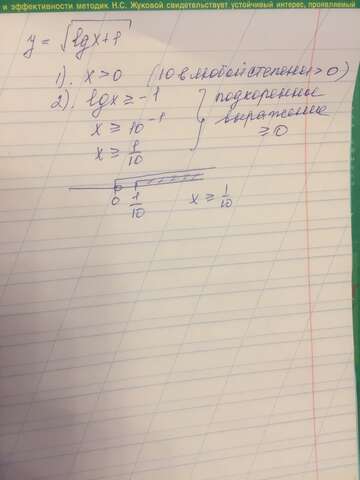 и эффективности методик Н.С. Жуковой свидетельствует устойчивый интерес, проявляемый
y = √(lg x + 1)
1). x > 0 (10 в любой степени > 0)
2). lg x ≥ -1 } подкоренное
x ≥ 10⁻¹ выражение
x ≥ 1/10 ≥ 0
0 1/10 x ≥ 1/10